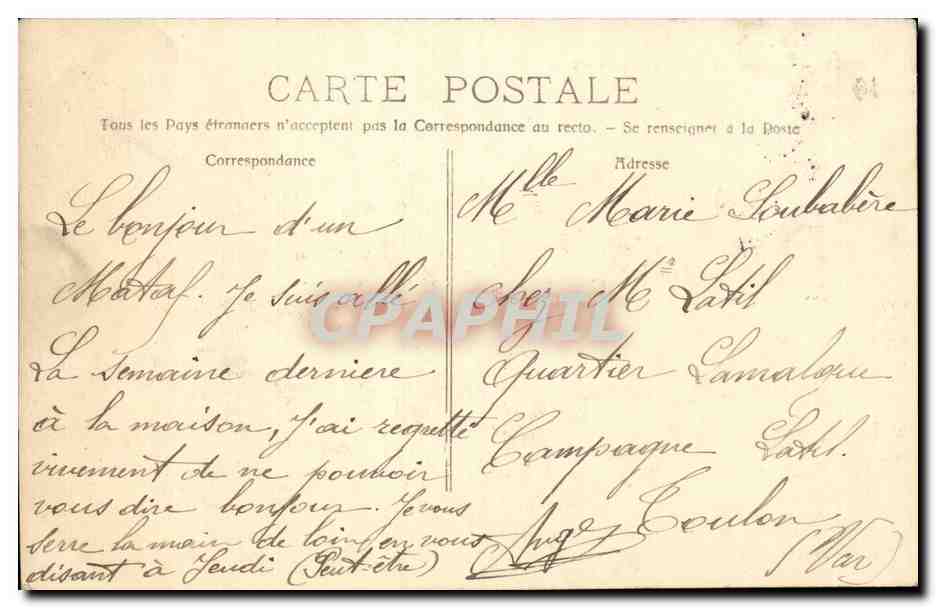 CARTE POSTALE
Tous les Pays étrangers n'acceptent pas la Correspondance au recto. - Se renseigner à la Poste
Correspondance
Le bonjour d'un
Mataf. Je suis allé
La semaine derniere
à la maison, J'ai regretté
vivement de ne pouvoir
vous dire bonjour. Je vous
serre la main de loin, en vous
disant à Jeudi (Peut-être)
Adresse
Mlle Marie Loubabère
chez Mr Latil
Quartier Lamalgue
Campagne Latil.
Toulon
(Var)
CPAPHIL